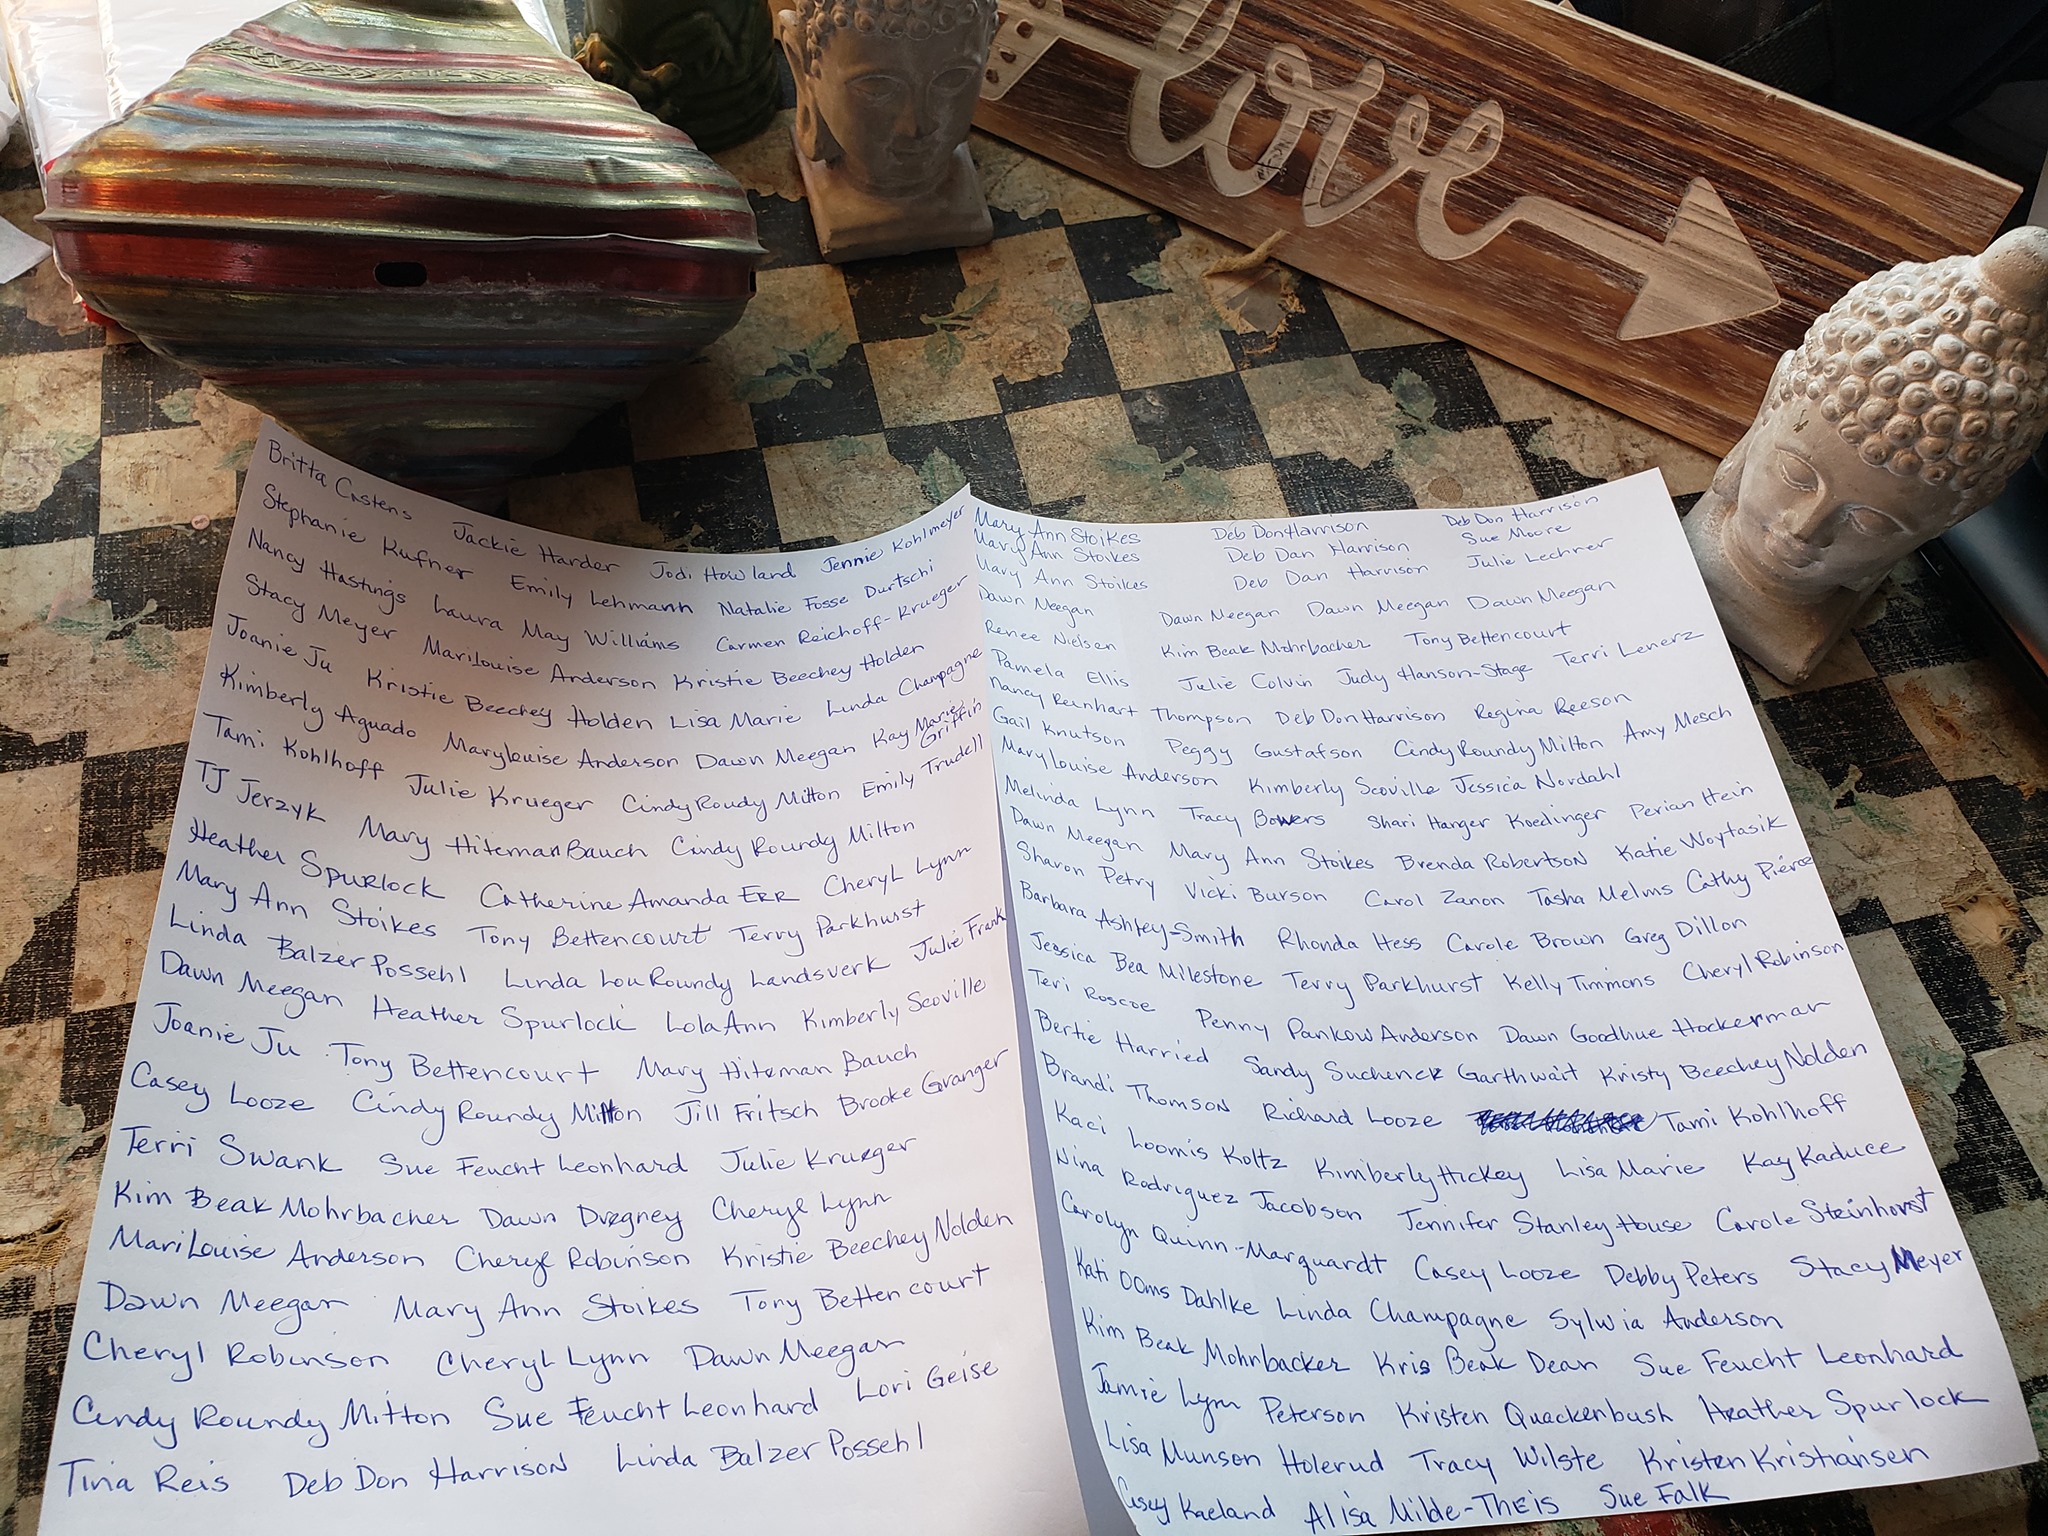 love
Britta Castens Jackie Harder Jodi Howland Jennie Kohlmeyer
Stephanie Kufner Emily Lehmann Natalie Fosse Durtschi
Nancy Hastings Laura May Williams Carmen Reichoff-Krueger
Stacy Meyer Marilouise Anderson Kristie Beechey Holden
Joanie Ju Kristie Beechey Holden Lisa Marie Linda Champagne
Kimberly Aguado Marylouise Anderson Dawn Meegan Kay Marie Griffin
Tami Kohlhoff Julie Krueger Cindy Roudy Milton Emily Trudell
TJ Jerzyk Mary Hiteman Bauch Cindy Roundy Milton
Heather Spurlock Catherine Amanda Err Cheryl Lynn
Mary Ann Stoikes Tony Bettencourt Terry Parkhurst
Linda Balzer Possehl Linda Lou Roundy Landsverk Julie Frank
Dawn Meegan Heather Spurlock Lola Ann Kimberly Scoville
Joanie Ju Tony Bettencourt Mary Hiteman Bauch
Casey Looze Cindy Roundy Milton Jill Fritsch Brooke Granger
Terri Swank Sue Feucht Leonhard Julie Krueger
Kim Beak Mohrbacher Dawn Dregney Cheryl Lynn
MariLouise Anderson Cheryl Robinson Kristie Beechey Nolden
Dawn Meegan Mary Ann Stoikes Tony Bettencourt
Cheryl Robinson Cheryl Lynn Dawn Meegan
Cindy Roundy Mitton Sue Feucht Leonhard Lori Geise
Tina Reis Deb Don Harrison Linda Balzer Possehl
Mary Ann Stoikes Deb Don Harrison Deb Don Harrison
Mary Ann Stoikes Deb Dan Harrison Sue Moore
Mary Ann Stoikes Deb Dan Harrison Julie Lechner
Dawn Meegan Dawn Meegan Dawn Meegan Dawn Meegan
Renee Nielsen Kim Beak Mohrbacher Tony Bettencourt
Pamela Ellis Julie Colvin Judy Hanson-Stage Terri Lenerz
Nancy Reinhart Thompson Deb Don Harrison Regina Reeson
Gail Knutson Peggy Gustafson Cindy Roundy Milton Amy Mesch
Mary Louise Anderson Kimberly Scoville Jessica Nordahl
Melinda Lynn Tracy Bowers Shari Hanger Koedinger Perian Hein
Dawn Meegan Mary Ann Stoikes Brenda Robertson Katie Woytasik
Sharon Petry Vicki Burson Carol Zanon Tasha Melms Cathy Pierce
Barbara Ashley-Smith Rhonda Hess Carole Brown Greg Dillon
Jessica Bea Milestone Terry Parkhurst Kelly Timmons Cheryl Robinson
Teri Roscoe Penny Pankow Anderson Dawn Goodhue Hockermar
Bertie Harried Sandy Suchenek Garthwait Kristy Beechey Nolden
Brandi Thomson Richard Looze Tami Kohlhoff
Kaci Loomis Koltz Kimberly Hickey Lisa Marie Kay Kaduce
Nina Rodriguez Jacobson Jennifer Stanley House Carole Steinhorst
Carolyn Quinn-Marquardt Casey Looze Debby Peters Stacy Meyer
Kati Ooms Dahlke Linda Champagne Sylwia Anderson
Kim Beak Mohrbacker Kris Beak Dean Sue Feucht Leonhard
Jamie Lynn Peterson Kristen Quackenbush Heather Spurlock
Lisa Munson Holerud Tracy Wilste Kristen Kristiansen
Casey Kaeland Alisa Milde-Theis Sue Falk